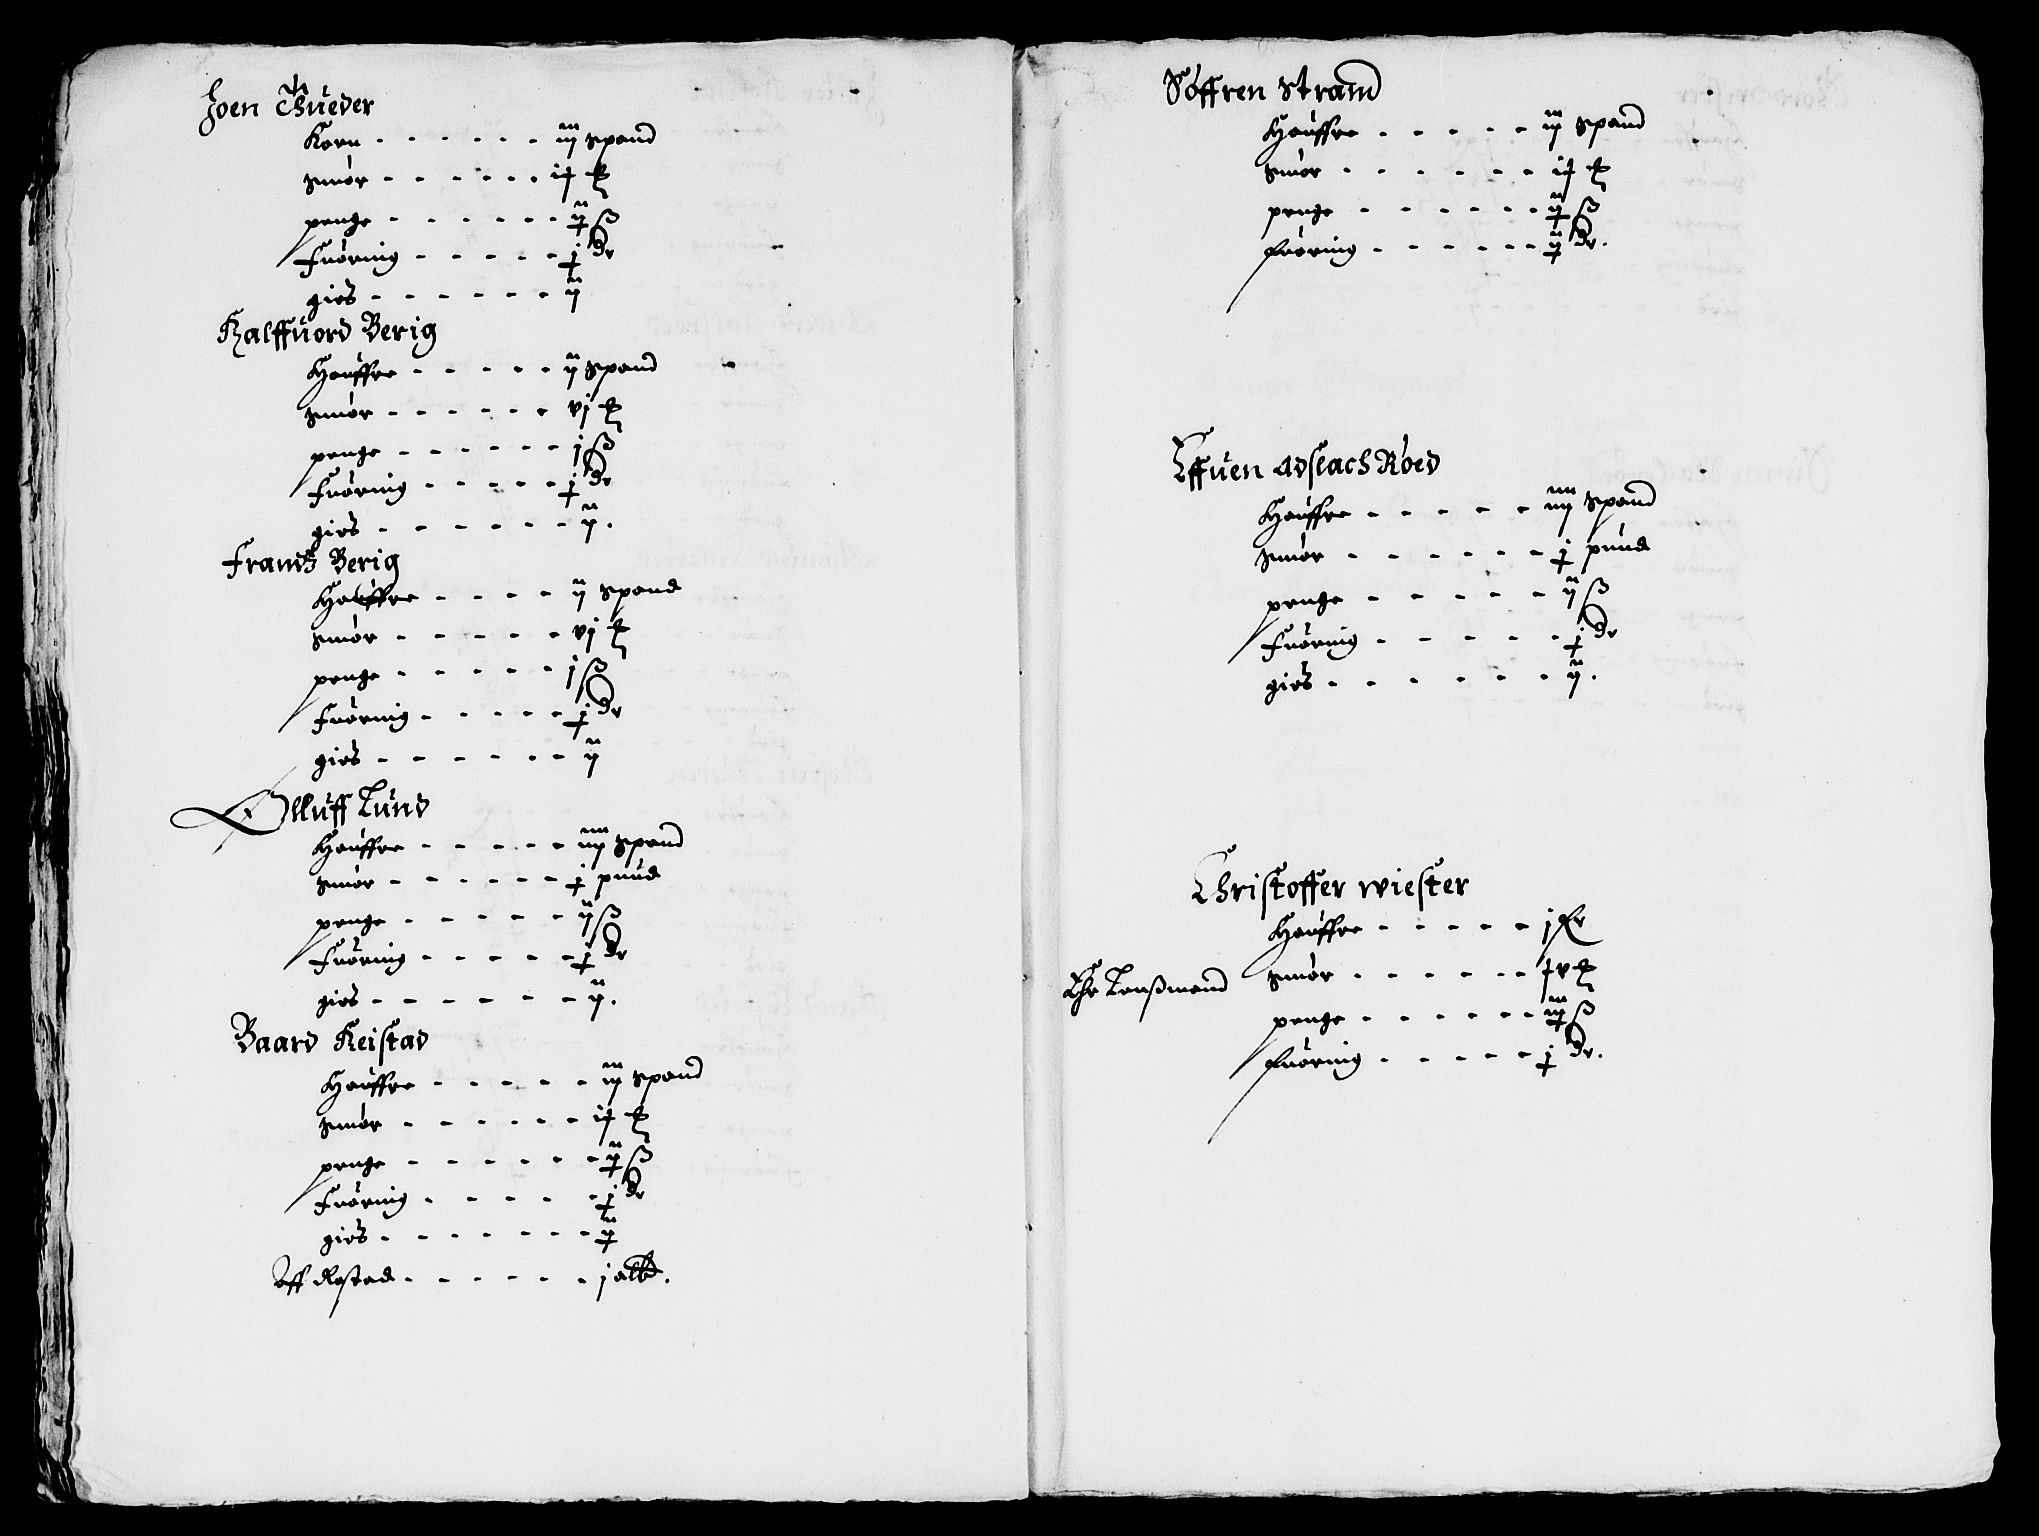 Joen Thueder
Korn - - - - - - iij spand
smör - - - - - - iꝷ ℔
penge - - - - - - ij ß
Fuöring - - - - - j dr
gies - - - - - - ij
Halffuord Berig
Hauffre - - - - - ij spand
smör - - - - - - vj ℔
penge - - - - - - j ß
Fuöring - - - - - j dr
gies - - - - - - ij.
Frandtz Berig
Hauffre - - - - ij spand
smör - - - - - vj ℔
penge - - - - - j ß
Fuöring - - - - - j dr
gies - - - - - - ij
Olluff Lund
Hauffre - - - - - iiij spand
smör - - - - - - j pund
penge - - - - - ij ß
Fuöring - - - - - j dr
gies - - - - - - ij.
Baard Keistad
Hauffre - - - - - iij spand
smör - - - - - - iꝷ ℔
penge - - - - - - ij ß
Fuöring - - - - - j dr
gies - - - - - - - ij
Aff Restad - - - - - - j albt.
Söffren Strand
Hauffre - - - - - iij spand
smör - - - - - - iꝷ ℔
penge - - - - - - ij ß
fuöring - - - - - - ij dr.
Effuen Adslach Röed
Hauffre - - - - - iiij spand
smör - - - - - - j pund
penge - - - - - ij ß
Fuöring - - - - - j dr
gies - - - - - - ij.
Christoffer wiester
Hauffre - - - - - j
smör - - - - - ꝷv ℔
Chr Lenßmand
penge - - - - - - iij ß
fuöring - - - - - j dr.